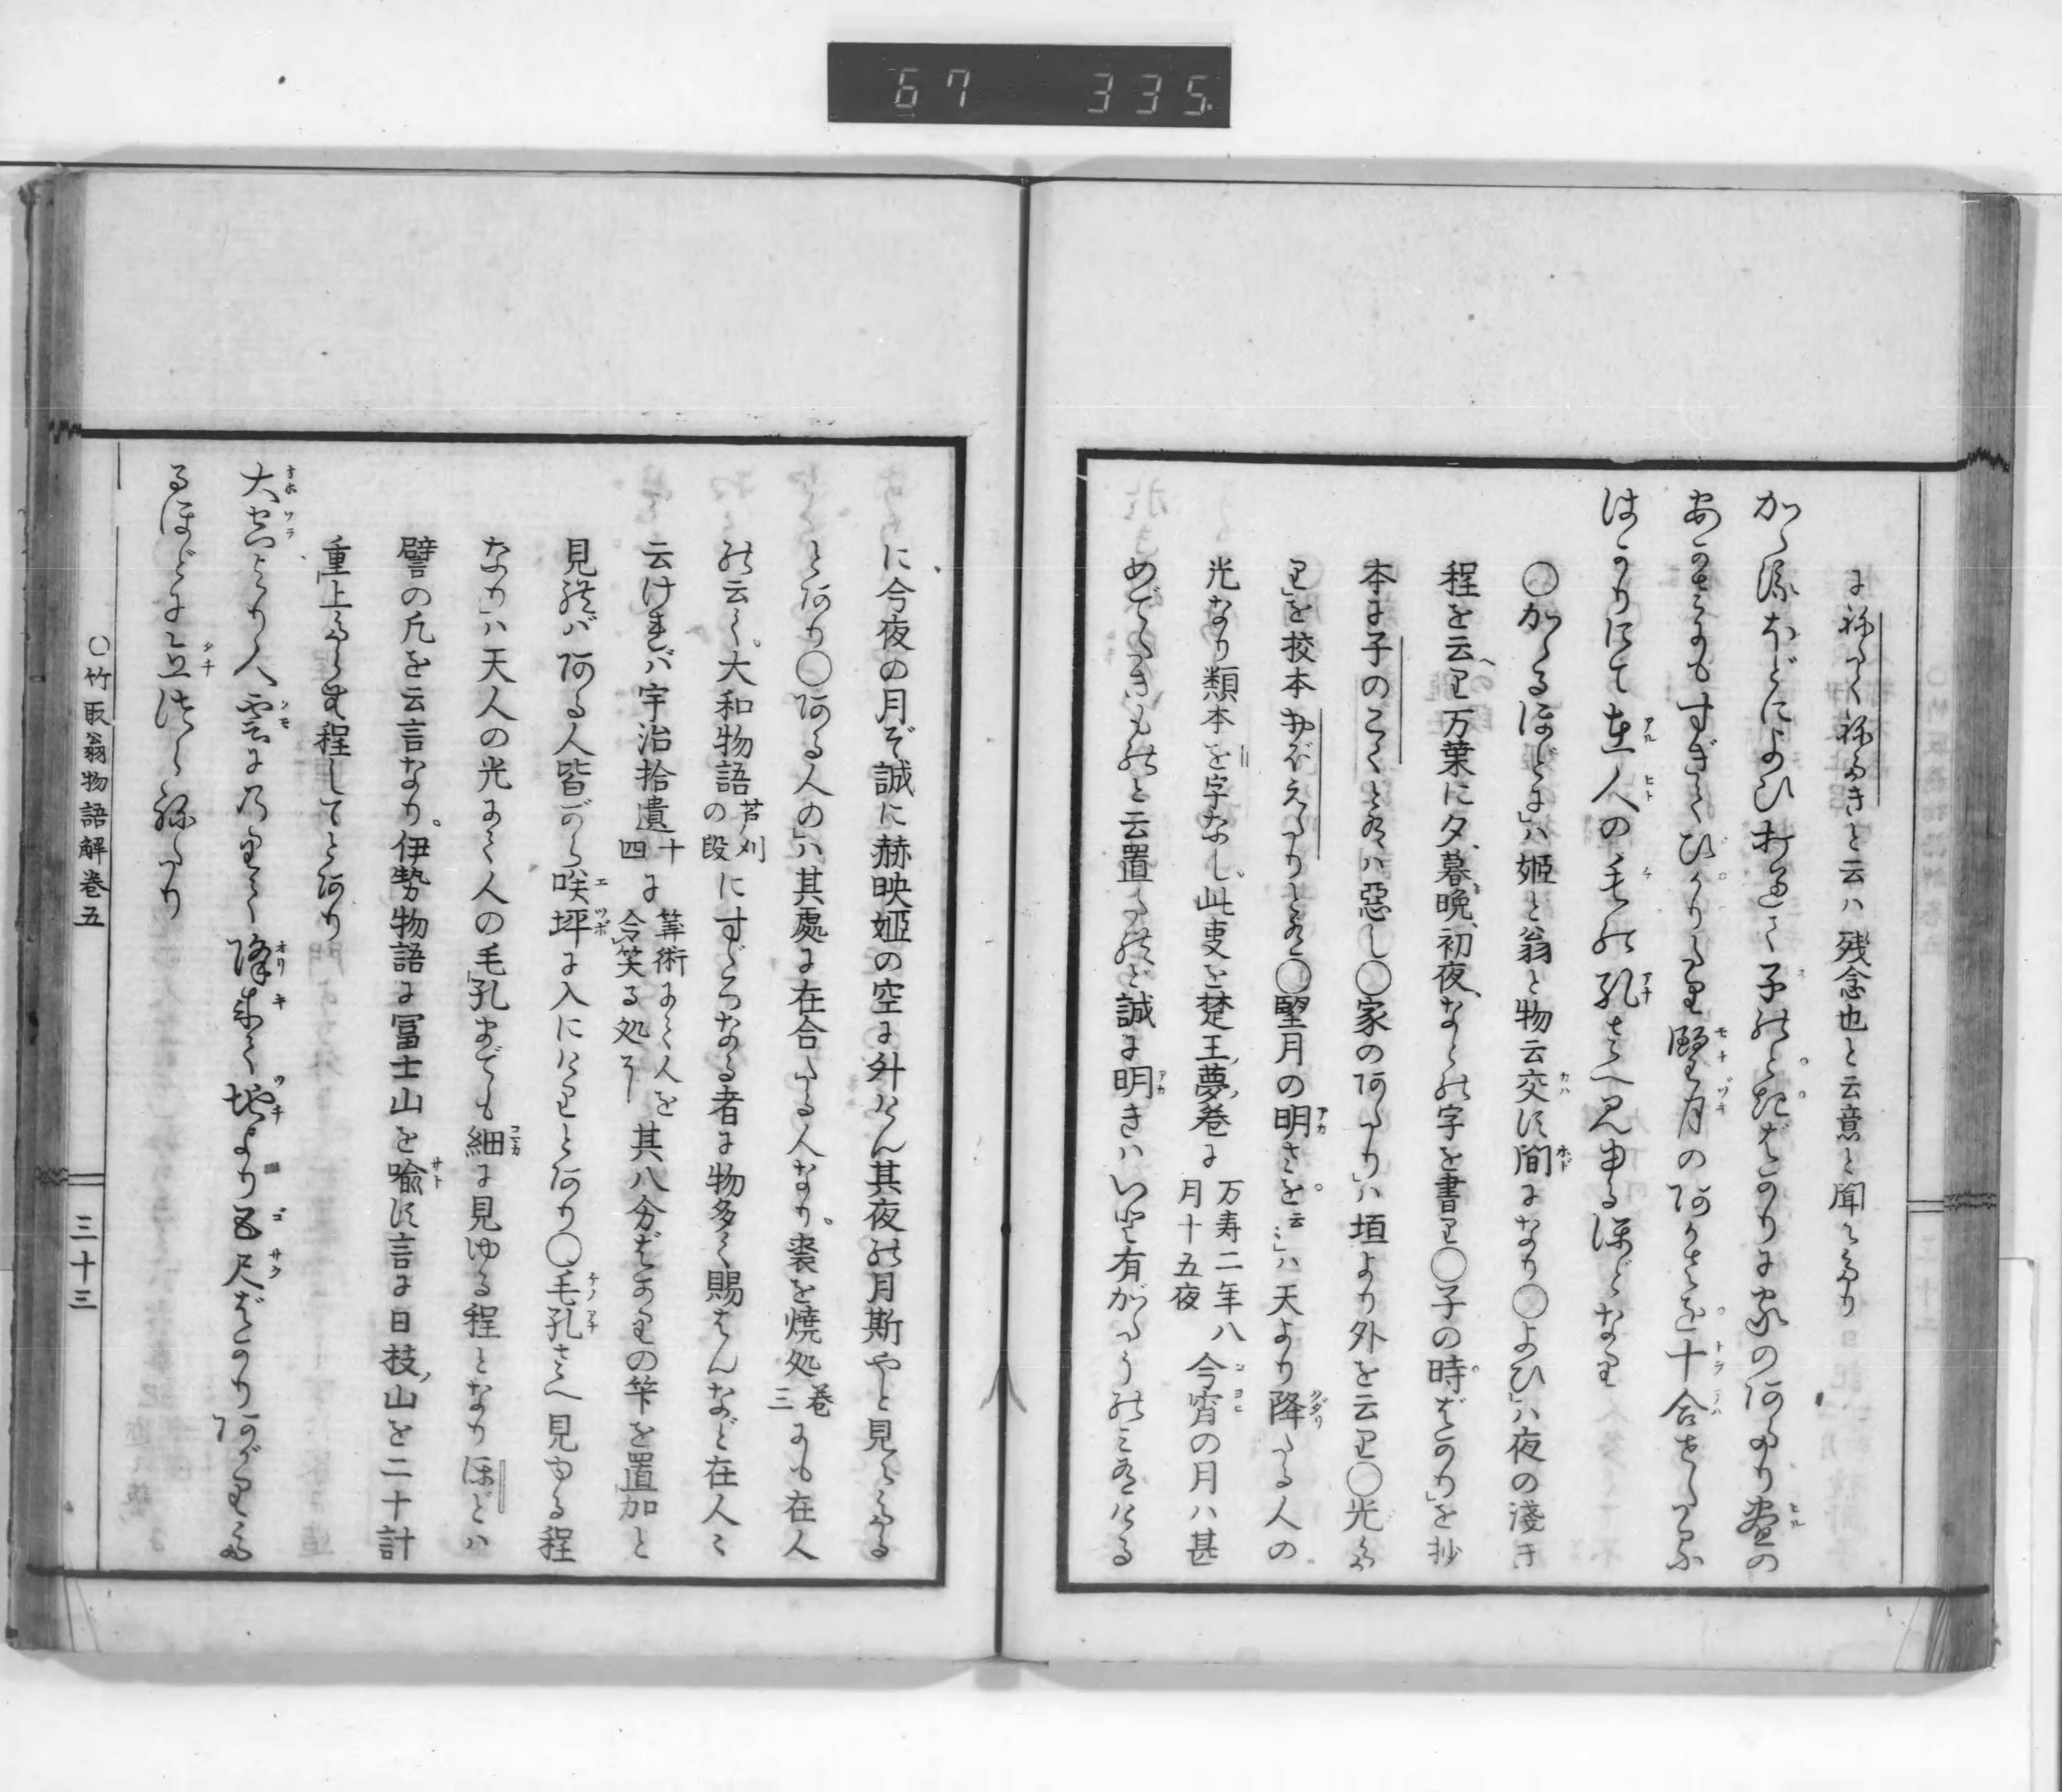 67 335
に祢たく祢たきと云ハ残念也と云意と聞えたり
かゝるほどによひ打過て子のときばかりに家のあたり昼の
あかさにもすぎてひかりたり望月のあかさを十合せたる
ばかりにて在人の毛の孔さへ見ゆるほどなり
○かゝるほどに」ハ姫と翁と物云交す間になり○よひ」ハ夜の淺き
程を云り万葉に夕、暮、晩、初夜、などの字を書り○子の時ばかり」を抄
本に子のこくとあるハ惡し○家のあたり」ハ垣より外を云り○光た
り」を挍本
○望月の明さを云〻」ハ天より降たる人の
光なり類本を字なし此叓を楚王ノ夢ノ卷に万寿二年八月十五夜今宵の月ハ甚
めでたきものと云置たれど誠に明きハいと有がたうのミあける
に今夜の月ぞ誠に赫映姫の空に外けん其夜の月斯やと見えたる
とあり○ある人の」ハ其處に在合たる人なり。裳を焼処卷三にも在人
の云く。大和物語芦ノ刈の段にすゞろなる者に物多く賜はんなど在人〻
云ければ宇治拾遺十四に筭術にて人を令笑る処に其八分ばかりの笇を置加と
見れバある人皆がら咲坪に入にけりとあり○毛孔さへ見ゆる程
なり」ハ天人の光にて人の毛孔までも細に見ゆる程となりほどハ
譬の凢を云言なり。伊勢物語に冨士山を喩す言に日枝ノ山を二十計
重上たらむ程してとあり
大空より人雲に乃りて降来て地より五尺ばかりあがりた
るほどに立つらねたり
○竹取翁物語解卷五
三十三